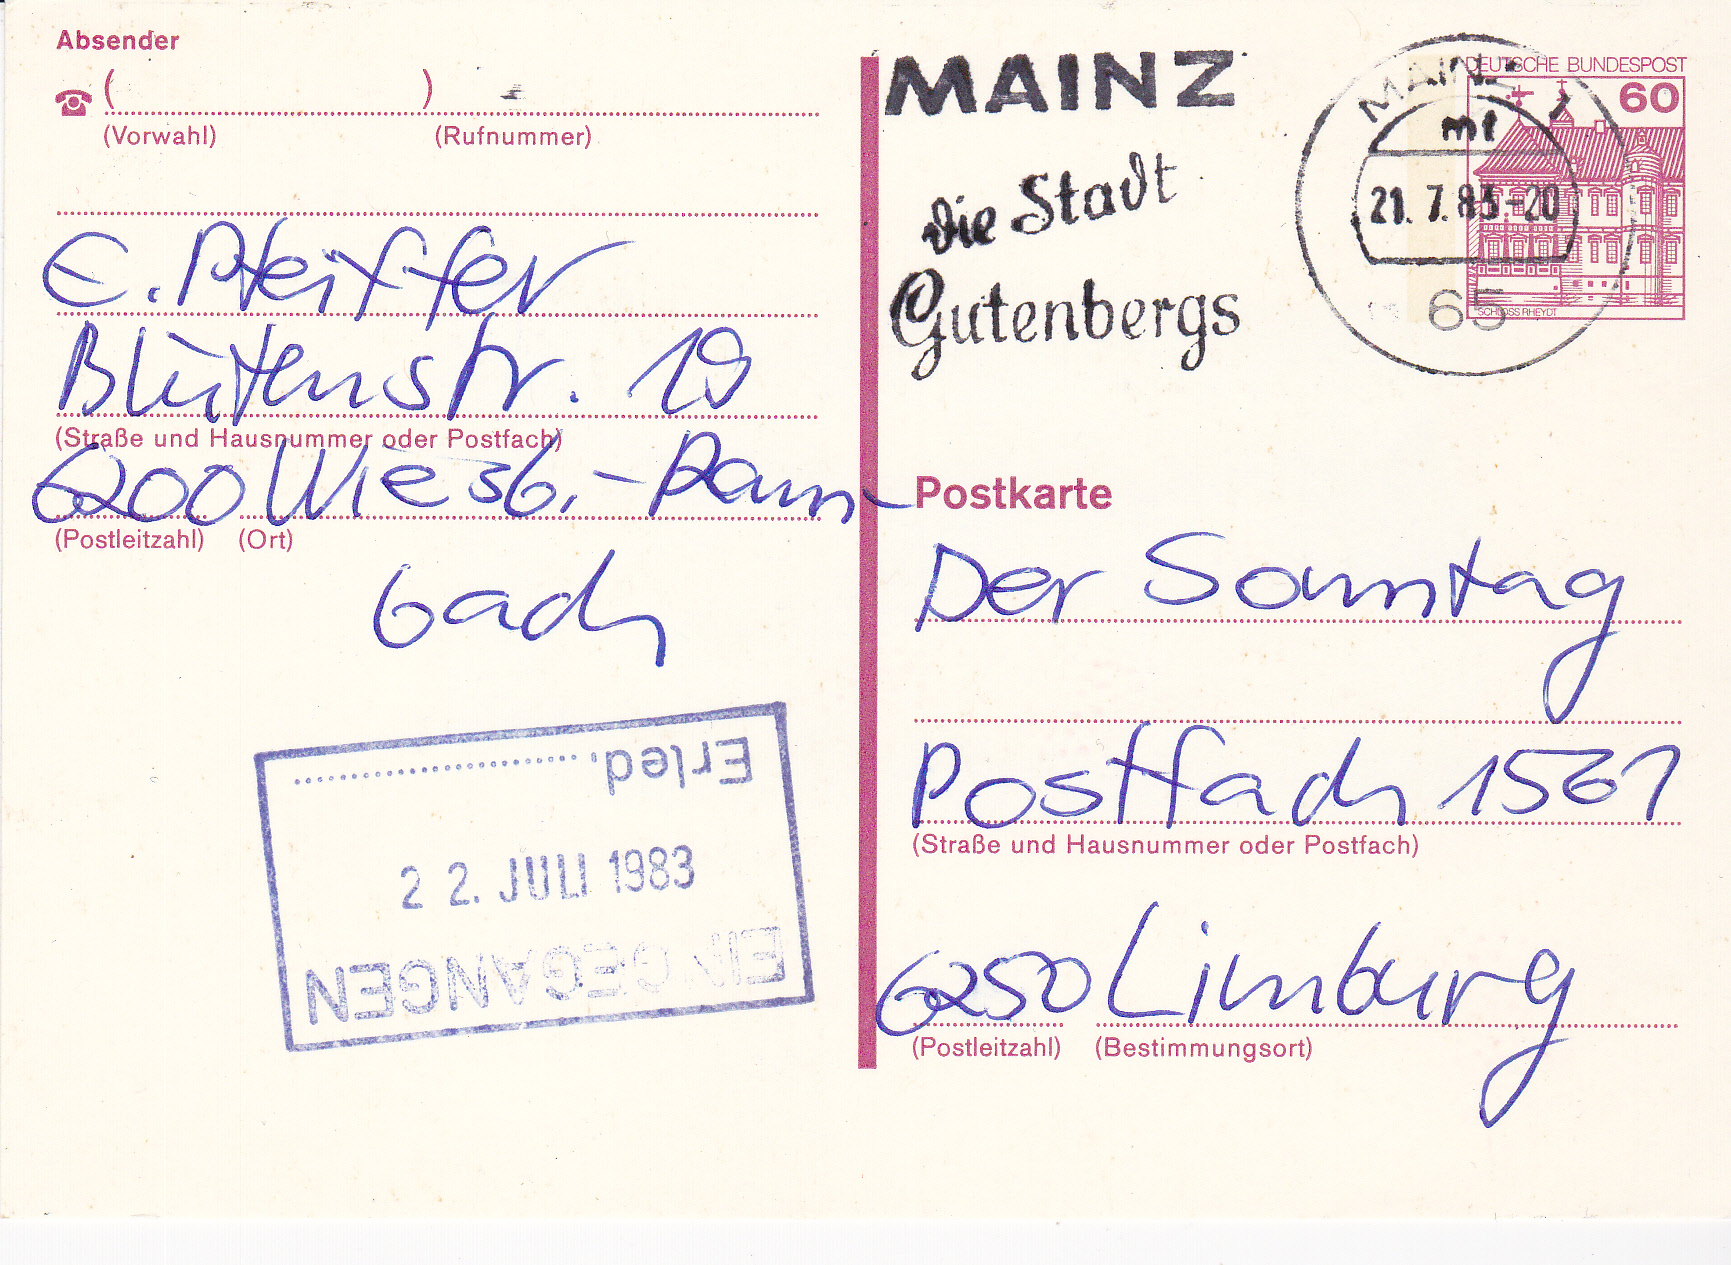 Absender
( )
(Vorwahl) (Rufnummer)
E. Pfeiffer
Blütenstr. 19
(Straße und Hausnummer oder Postfach)
6200 Wiesb.-Ram-
(Postleitzahl) (Ort)
bach
Erled.
22. JULI 1983
EINGEGANGEN
MAINZ
die Stadt
Gutenbergs
MAINZ 1
mt
21. 7. 83-20
65
DEUTSCHE BUNDESPOST
60
SCHLOSS RHEYDT
Postkarte
Der Sonntag
Postfach 1561
(Straße und Hausnummer oder Postfach)
6250 Limburg
(Postleitzahl) (Bestimmungsort)